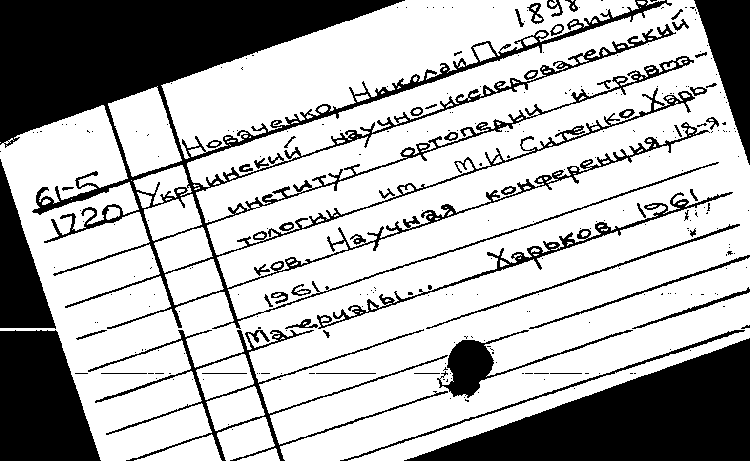 1898
Новаченко, Николай Петрович,
61-5
1720
Украинский научно-исследовательский
институт ортопедии и травма-
тологии им. М.И. Ситенко. Харь-
ков. Научная конференция, 18-я.
1961.
Материалы... Харьков, 1961.